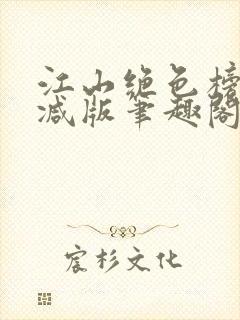 江山绝色榜
减版笔趣阁
宸杉文化